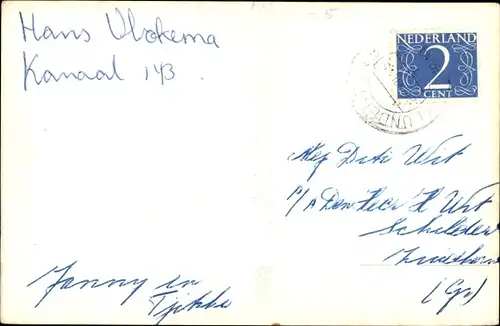 Hans Vlokema
Kanaal 143.
NEDERLAND
2
CENT
Mej Dity Wit
P/A Den Heer H Wit
Schilder
(Gr)
Janny en
Tjikke